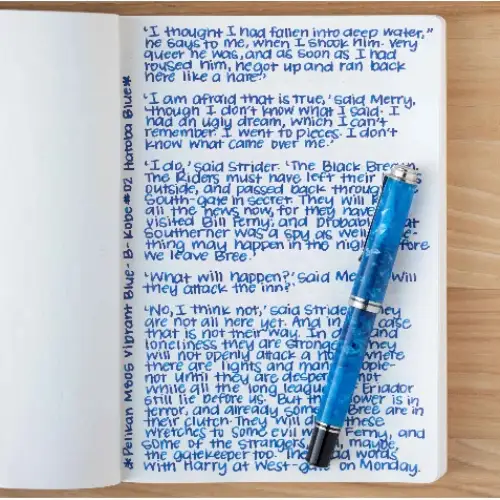 'I thought I had fallen into deep water,"
he says to me, when I shook him. Very
queer he was, and as soon as I had
roused him, he got up and ran back
here like a hare.'
'I am afraid that is true,' said Merry,
'though I don't know what I said. I
had an ugly dream, which I can't
remember. I went to pieces. I don't
know what came over me.'
'I do,' said Strider. 'The Black Breath.
The Riders must have left their
outside, and passed back through
South-gate in secret. They will
all the news now, for they have
visited Bill Ferny; and probably that
Southerner was a spy as well.
thing may happen in the night, before
we leave Bree.'
'What will happen?' said Merry. Will
they attack the inn?'
'No, I think not,' said Strider. They
are not all here yet. And in case
that is not their way. In and
loneliness they are strongest; they
will not openly attack a where
there are lights and many people-
not until they are desperate, not
while all the long leagues Eriador
still lie before us. But their power is in
terror, and already some Bree are in
their clutch. They will these
wretches to some evil Ferny, and
some of the strangers, maybe,
the gatekeeper too. They had words
with Harry at West-gate on Monday.
*Pelikan M805 Vibrant Blue- B- Kobe #02 Hatoba Blue*